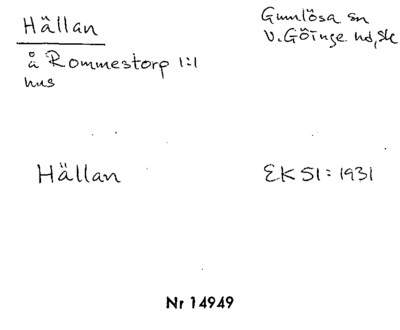 Hällan
å Rommestorp 1:1
hus
Gumlösa sn
V. Göinge hd, Sk
Hällan
EK 51: 1931
Nr 14949